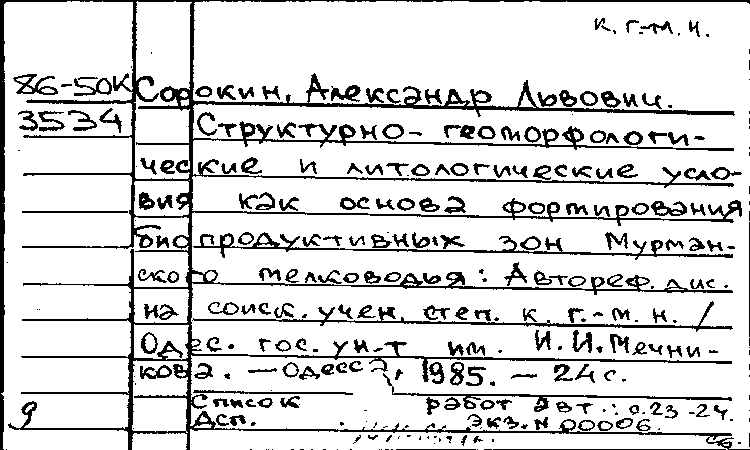 к. г.-м. н.
86-50К Сорокин, Александр Львович.
3534 Структурно-геоморфологи-
ческие и литологические усло-
вия как основа формирования
биопродуктивных зон Мурман-
ского мелководья: Автореф. дис.
на соиск. учен. степ. к. г.-м. н. /
Одес. гос. ун-т им. И. И. Мечни-
кова. — Одесса, 1985. — 24 с.
Список работ авт.: с. 23-24.
9 Дсп. Экз. N 00006.